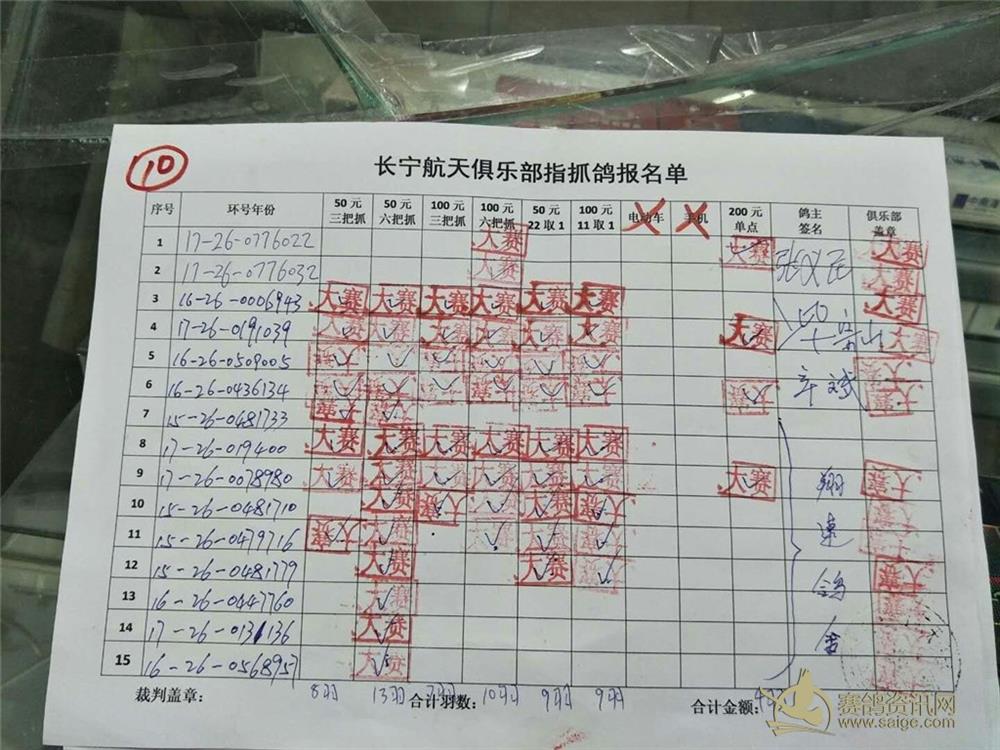 10
长宁航天俱乐部指抓鸽报名单
序号 环号年份 50元三把抓 50元六把抓 100元三把抓 100元六把抓 50元22取1 100元11取1 电动车 手机 200元单点 鸽主签名 俱乐部盖章
1 17-26-0776022 大赛 大赛 大赛
2 17-26-0776032 大赛 大赛
3 16-26-0006943 大赛 大赛 大赛 大赛 大赛 大赛 大赛
4 17-26-0191039 大赛 大赛 大赛 大赛 大赛 大赛 大赛 大赛
5 16-26-0509005
6 16-26-0436134
7 15-26-0481733
8 17-26-019400 大赛 大赛 大赛 大赛 大赛 大赛
9 17-26-0078980 大赛 大赛 大赛 大赛 大赛 大赛 大赛 大赛
10 15-26-0481710 大赛 大赛 大赛 大赛 翔
11 15-26-0479716 大赛 大赛 速
12 15-26-0481779 大赛 大赛 大赛
13 16-26-0447760 大赛 鸽
14 17-26-0131136 大赛 舍
15 16-26-0568957 大赛
裁判盖章: 8羽 13羽 合计羽数: 10羽 9羽 9羽 合计金额:
赛鸽资讯网
www.saige.com